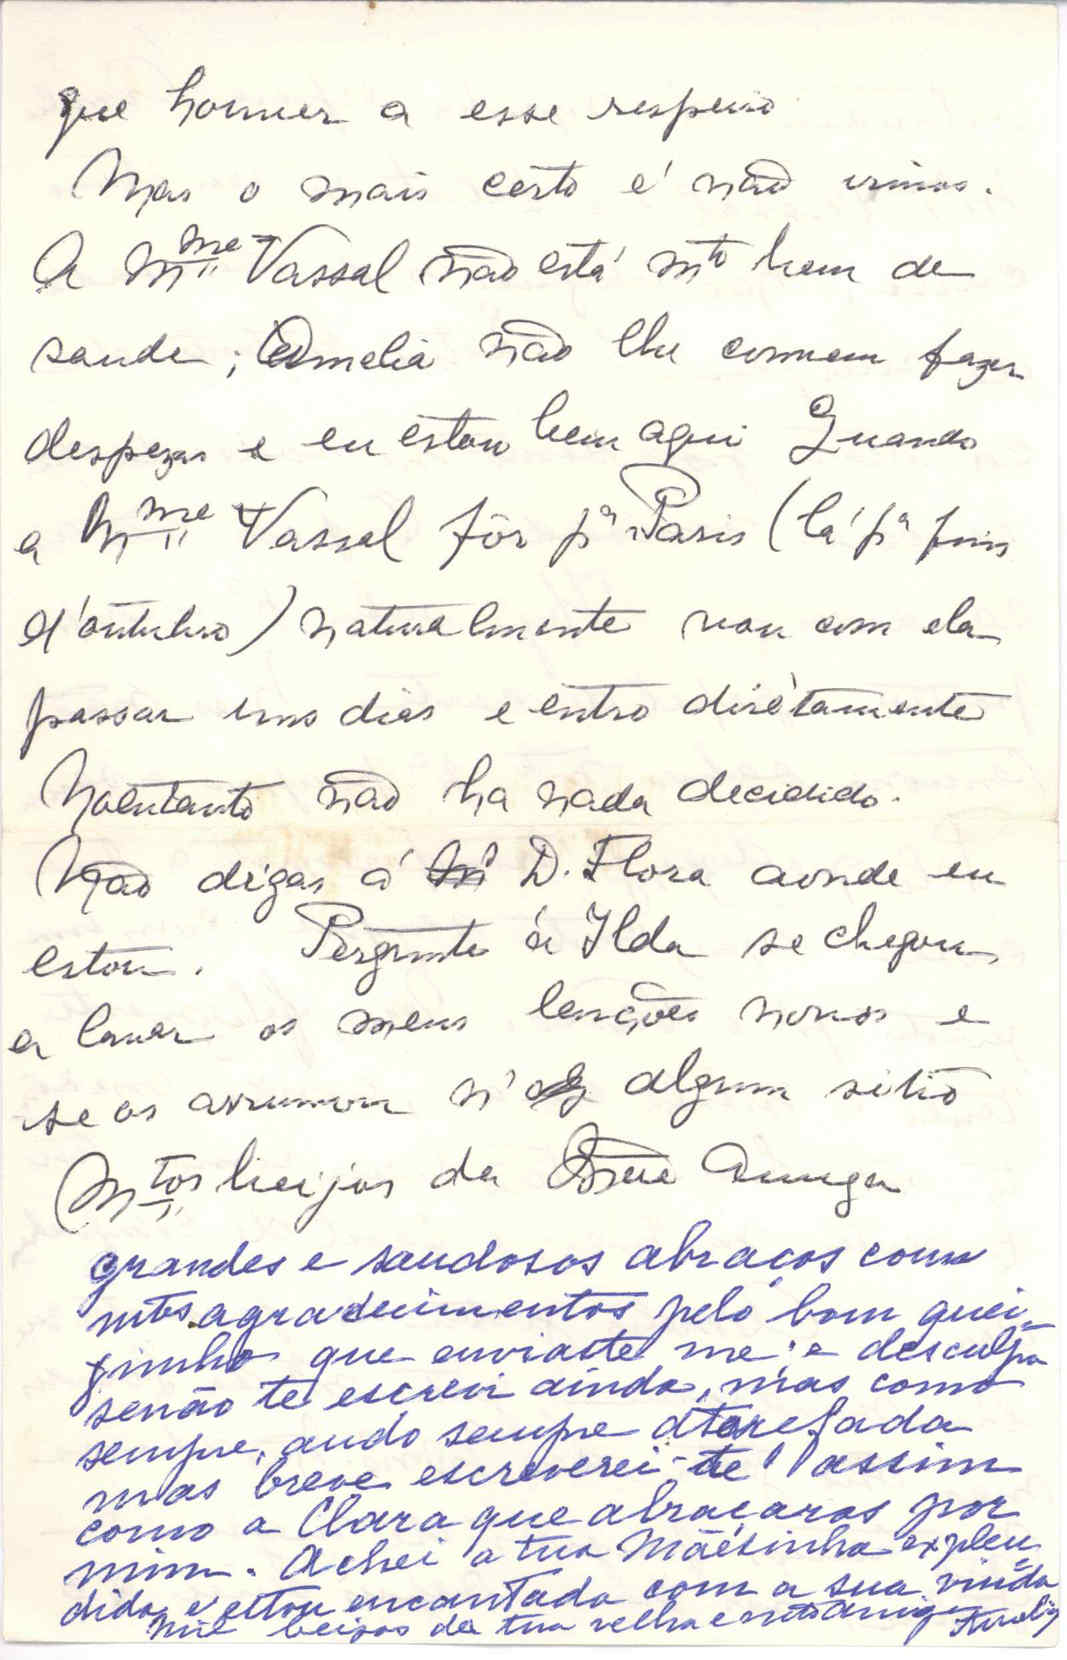 que houver a esse respeito
Mas o mais certo é não irmos.
A Mme Vassal não está mto bem de
saude; Amelia não lhe convem fazer
despezas e eu estou bem aqui Quando
a Mme Vassal fôr pa Paris (lá pa fins
d'outubro) naturalmente vou com ela
passar uns dias e entro dirètamente
Noentanto não ha nada decidido.
Não digas á D. Flora aonde eu
estou. Pergunta á Ilda se chegou
a lavar os meus lenções novos e
se os arrumou n' algum sitio
Mtos beijos da Mãe Amiga
grandes e saudosos abraços com
mtos agradecimentos pelo bom quei-
jinho que enviaste me e desculpa
senão te escrevi ainda, mas como
sempre, ando sempre atarefada
mas breve escreverei-te assim
como a Clara que abraçaras por
mim. Achei a tua Mãesinha explen
dida e estou encantada com a sua vinda
Mil beijos da tua velha e mto amiga